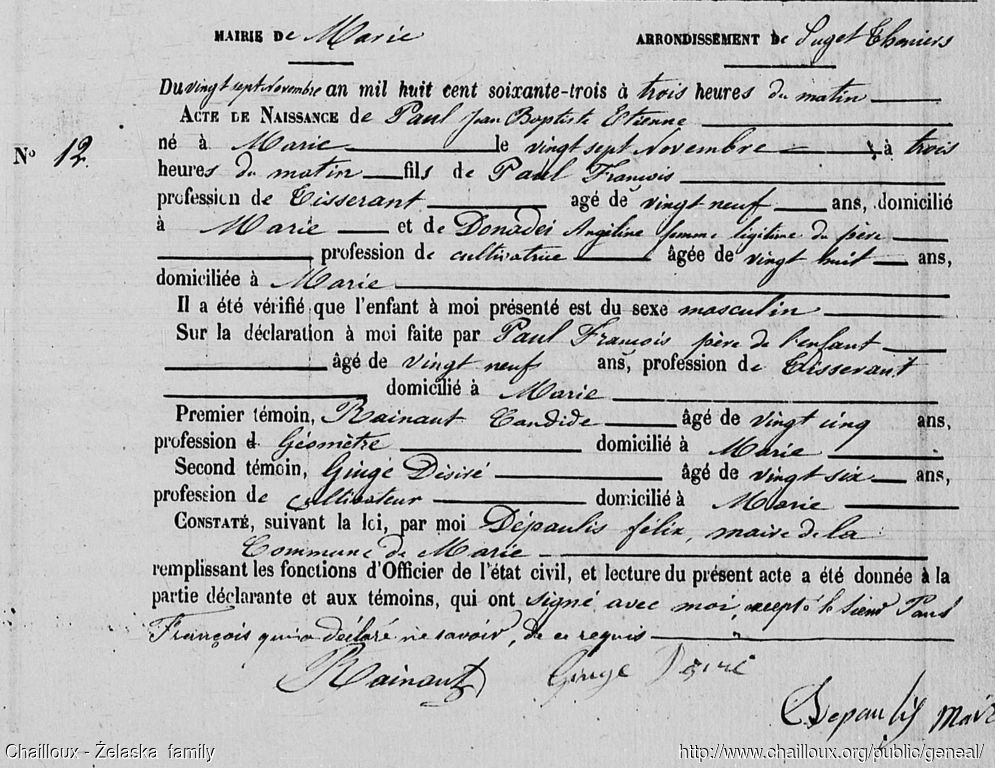 MAIRIE DE Marie ARRONDISSEMENT de Puget Theniers
Du vingt sept Novembre an mil huit cent soixante-trois à trois heures du matin
ACTE DE NAISSANCE de Paul Jean Baptiste Etienne
N° 12
né à Marie le vingt sept Novembre à trois
heures du matin fils de Paul François
profession de Tisserant agé de vingt neuf ans, domicilié
à Marie et de Donadei Angéline femme légitime du père
profession de cultivatrice âgée de vingt huit ans,
domiciliée à Marie
Il a été vérifié que l'enfant à moi présenté est du sexe masculin
Sur la déclaration à moi faite par Paul François père de l'enfant
âgé de vingt neuf ans, profession de Tisserant
domicilié à Marie
Premier témoin, Rainaut Candide âgé de vingt cinq ans,
profession d Géomètre domicilié à Marie
Second témoin, Ginge Désiré âgé de vingt six ans,
profession de cultivateur domicilié à Marie
CONSTATÉ, suivant la loi, par moi Dépaulis félix, maire de la
Commune de Marie
remplissant les fonctions d'Officier de l'état civil, et lecture du présent acte a été donnée à la
partie déclarante et aux témoins, qui ont signé avec moi, excepté le sieur Paul
François qui a déclaré ne savoir, de ce requis
Rainaut Ginge Désiré
Depaulis maire
Chailloux - Želaska family http://www.chailloux.org/public/geneal/